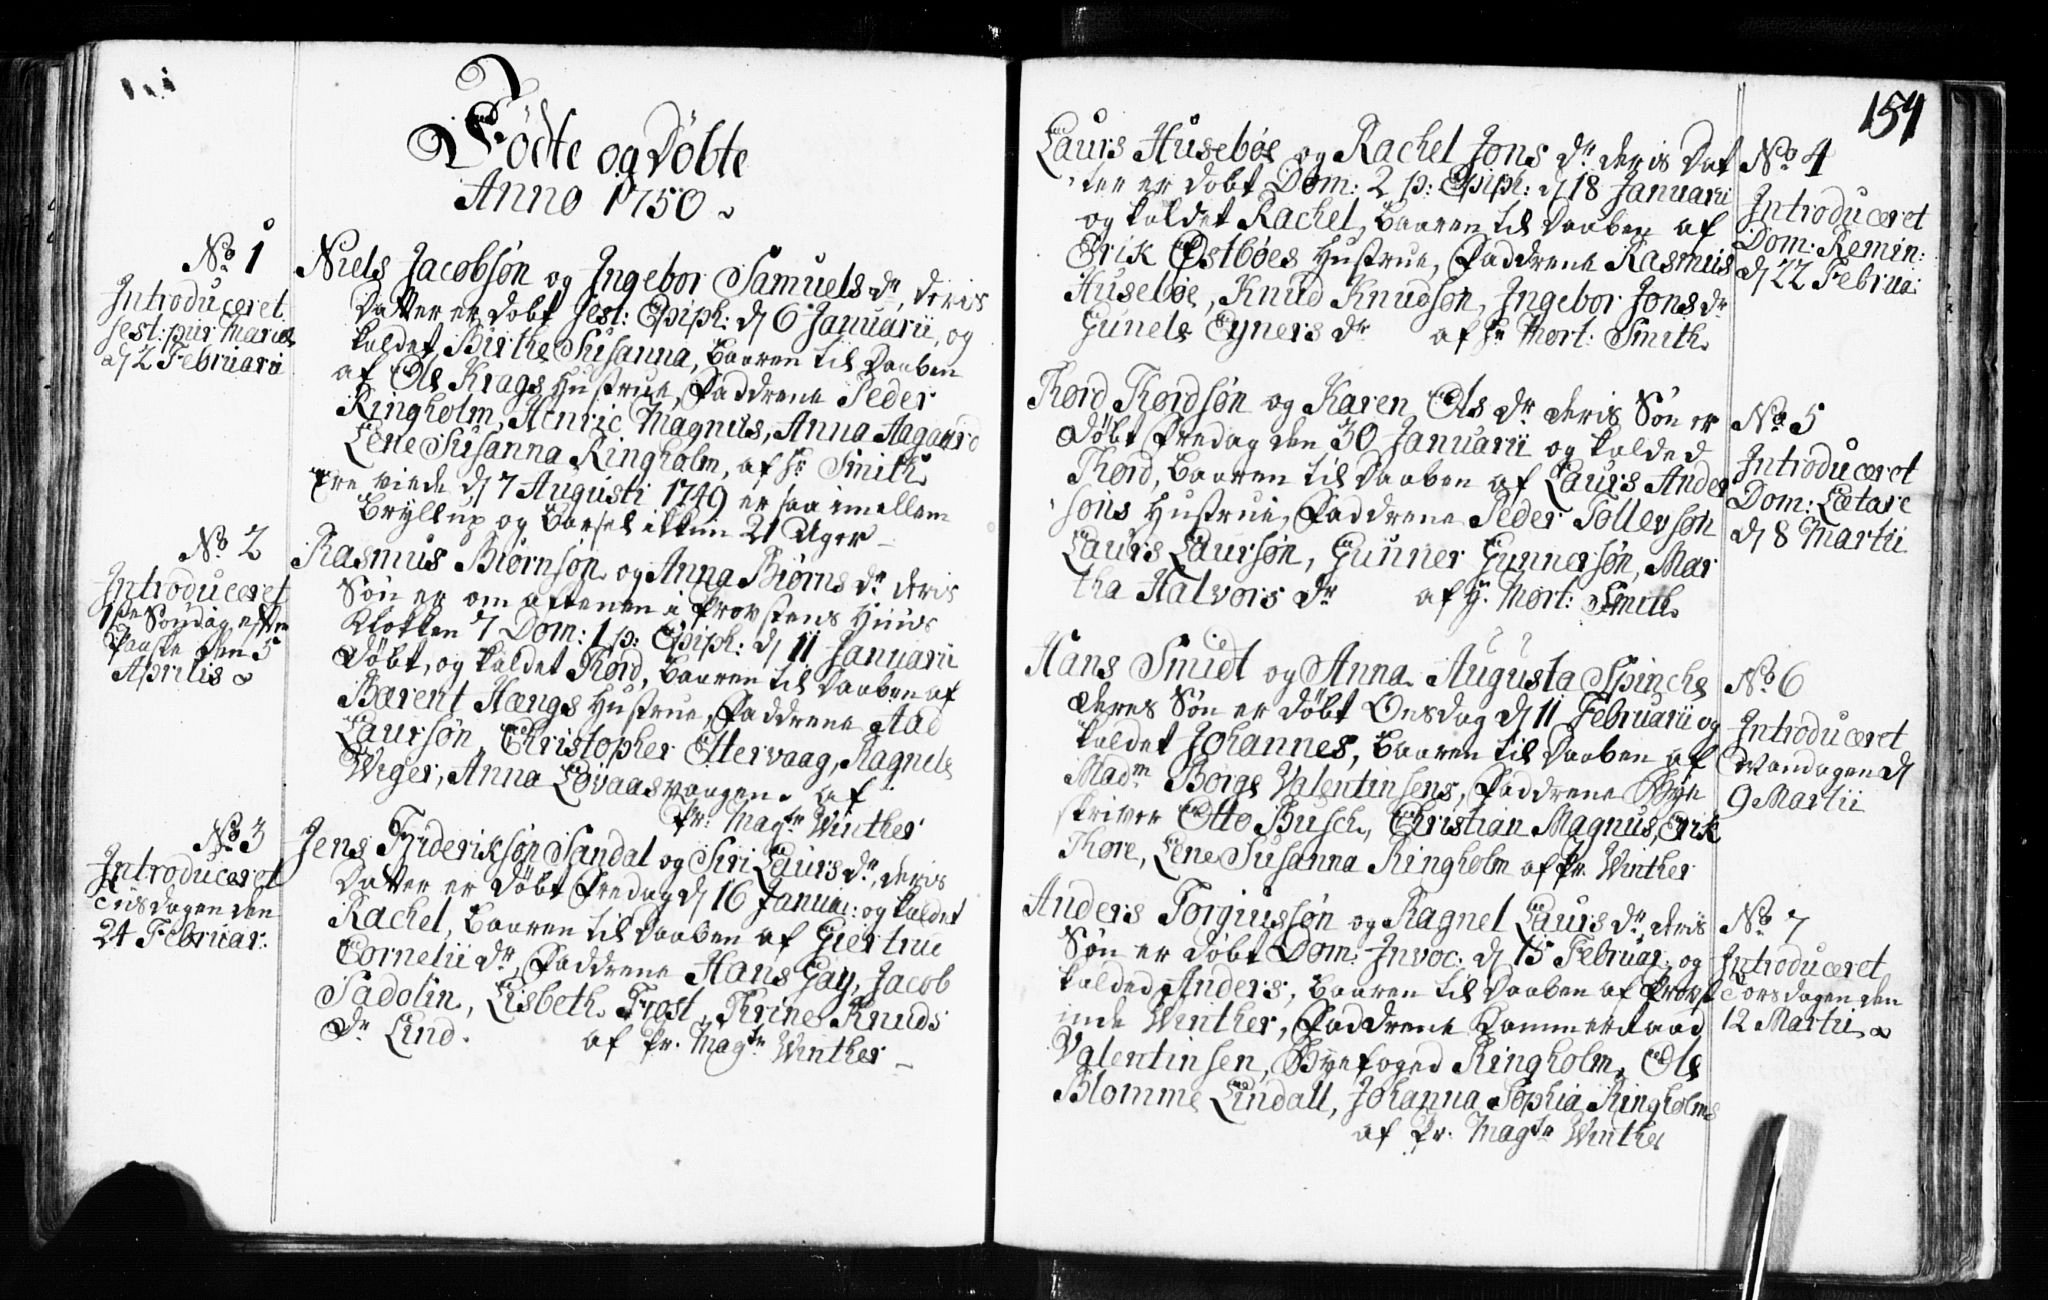 Fødte og Døbte
Anno 1750
No 1
Introduceret
Fest: pur: Mariæ
d/ 2 Februarii
Niels Jacobsøn og Ingebor Samuels dr, deris
Datter er døbt Fest: Epiph: d/ 6 Januarii, og
kaldet Birthe Susanna, baaren til Daaben
af Ole Krags Hustrue, Faddrene Peder
Ringholm, Henric Magnus, Anna Aagaard
Lene Susanna Ringholm, af Hr Smith
Ere viede d/ 7 Augusti 1749 er saa imellem
Bryllup og Barsel ikkun 21 Uger
No 2
Introduceret
1ste Søndag efter
Paaske den 5
Aprilis
Rasmus Biørnsøn og Anna Biørns dr deris
Søn er om aftenen i Provstens Huus
Klokken 7 Dom: 1 p: Epiph: d/ 11 Januarii
Døbt, og kaldet Thord, baaren til Daaben af
Bærent Haugs Hustrue, Faddrene Aad
Laursøn, Christopher Ettervaag, Ragnele
Wiger, Anna Løvaasvaagen. af
Pr: Magtr Winther
No 3
Introduceret
Tiisdagen den
24 Februar:
Jens Frideriksøn Sandal og Siri Laurs dr, deris
Datter er døbt Fredag d/ 16 Januar: og kaldet
Rachel, baaren til Daaben af Giertrue
Cornelii dr, Faddrene Hans Gay, Jacob
Sadolin, Lisbeth Frost, Thrine Knuds
Dr Lind. af Pr. Magtr Winther
154
Laurs Husebøe og Rachel Jons dr deris Dat
ter er døbt Dom: 2 p: Epiph: d/ 18 Januarii
og kaldet Rachel, baaren til Daaben af
Erik Østbøes Hustrue, Faddrene Rasmus
Husebøe, Knud Knudsøn, Ingebor Jons dr
Gunele Eyners dr af Hr Mort: Smith
No 4
Introduceret
Dom: Remin:
d/ 22 Februa:
Thord Thordsøn og Karen Ols dr deris Søn er
Døbt Fredag den 30 Januarii og kalded
Thord, baaren til Daaben af Laurs Ander
søns Hustrue, Faddrene Peder Tollevsøn
Laurs Laursøn, Gunner Gunnersøn, Mar
tha Halvors dr af H. Mort: Smith
No 5
Introduceret
Dom: Lætare
d/ 8 Martii
Hans Smidt og Anna Augusta Spinche
deres Søn er døbt Onsdag d/ 11 Februarii og
kaldet Johannes, baaren til Daaben af
Madm Borge Valentinsens, Faddrene Bye
skriver Otto Busch, Christian Magnus, Erik
Thore, Lene Susanna Ringholm af Pr. Winther
No 6
Introduceret
Mandagen d/
9 Martii
Anders Torgiussøn og Ragnel Laurs dr, deris
Søn er døbt Dom: Invoc: d/ 15 Februar: og
kalded Anders, baaren til Daaben af Provst
inde Winther, Faddrene Kammerraad
Valentinsen, Byefoged Ringholm, Ole
Blomme Lindall, Johanna Sophia Ringholms
af Pr. Magtr Winther
No 7
Introduceret
Torsdagen den
12 Martii